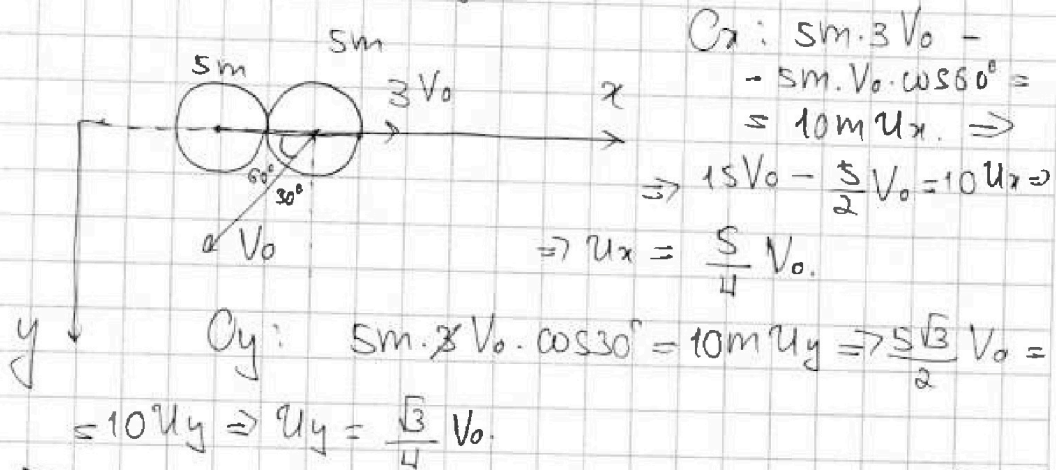 5m
5m
3V₀
x
60°
30°
V₀
y
Ox: 5m·3V₀ -
- 5m·V₀·cos60° =
= 10mUx. ⇒
⇒ 15V₀ - 5/2 V₀ = 10Ux ⇒
⇒ Ux = 5/4 V₀.
Oy: 5m·V₀·cos30° = 10mUy ⇒ 5√3/2 V₀ =
= 10Uy ⇒ Uy = √3/4 V₀.